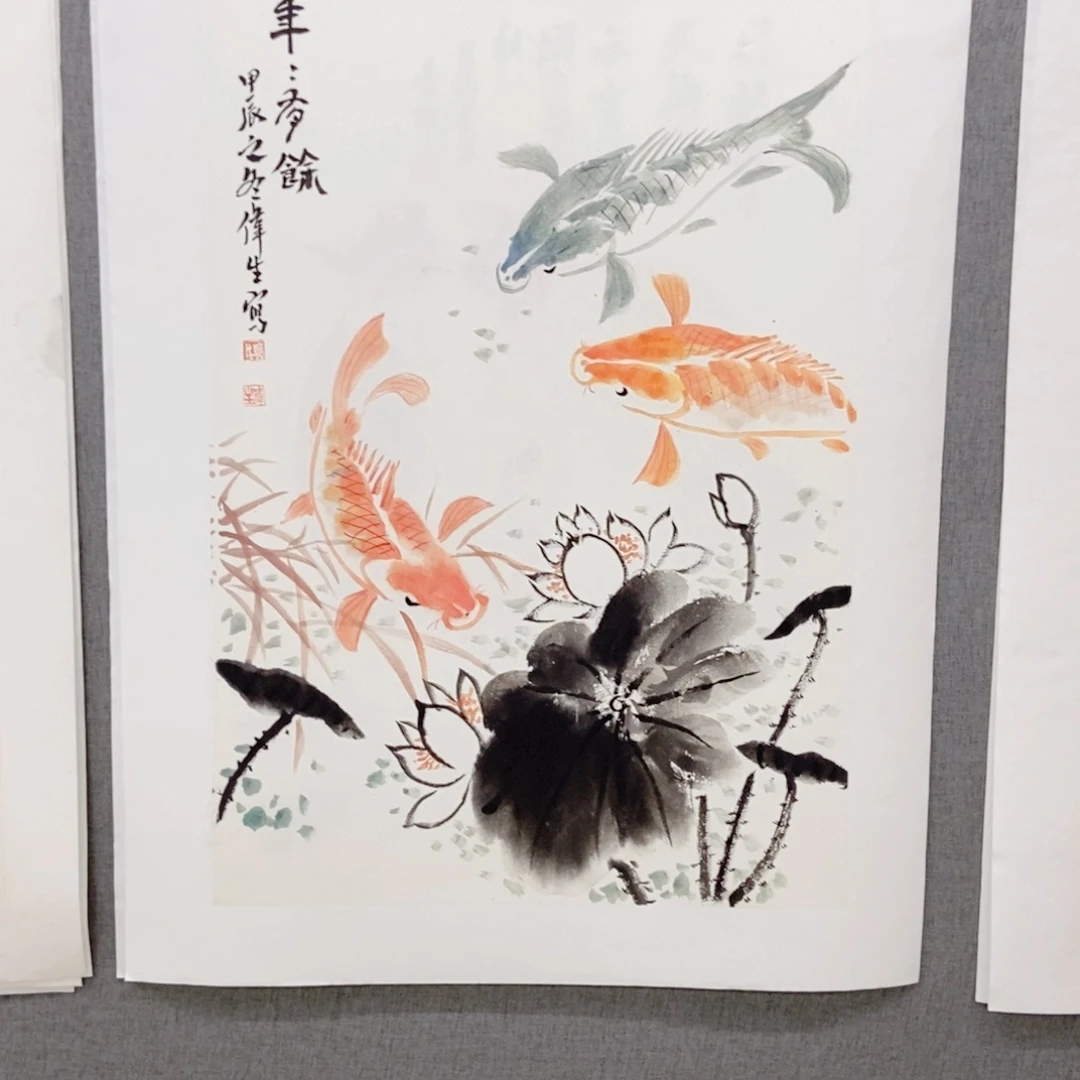 年〻有餘
甲辰之冬偉生寫